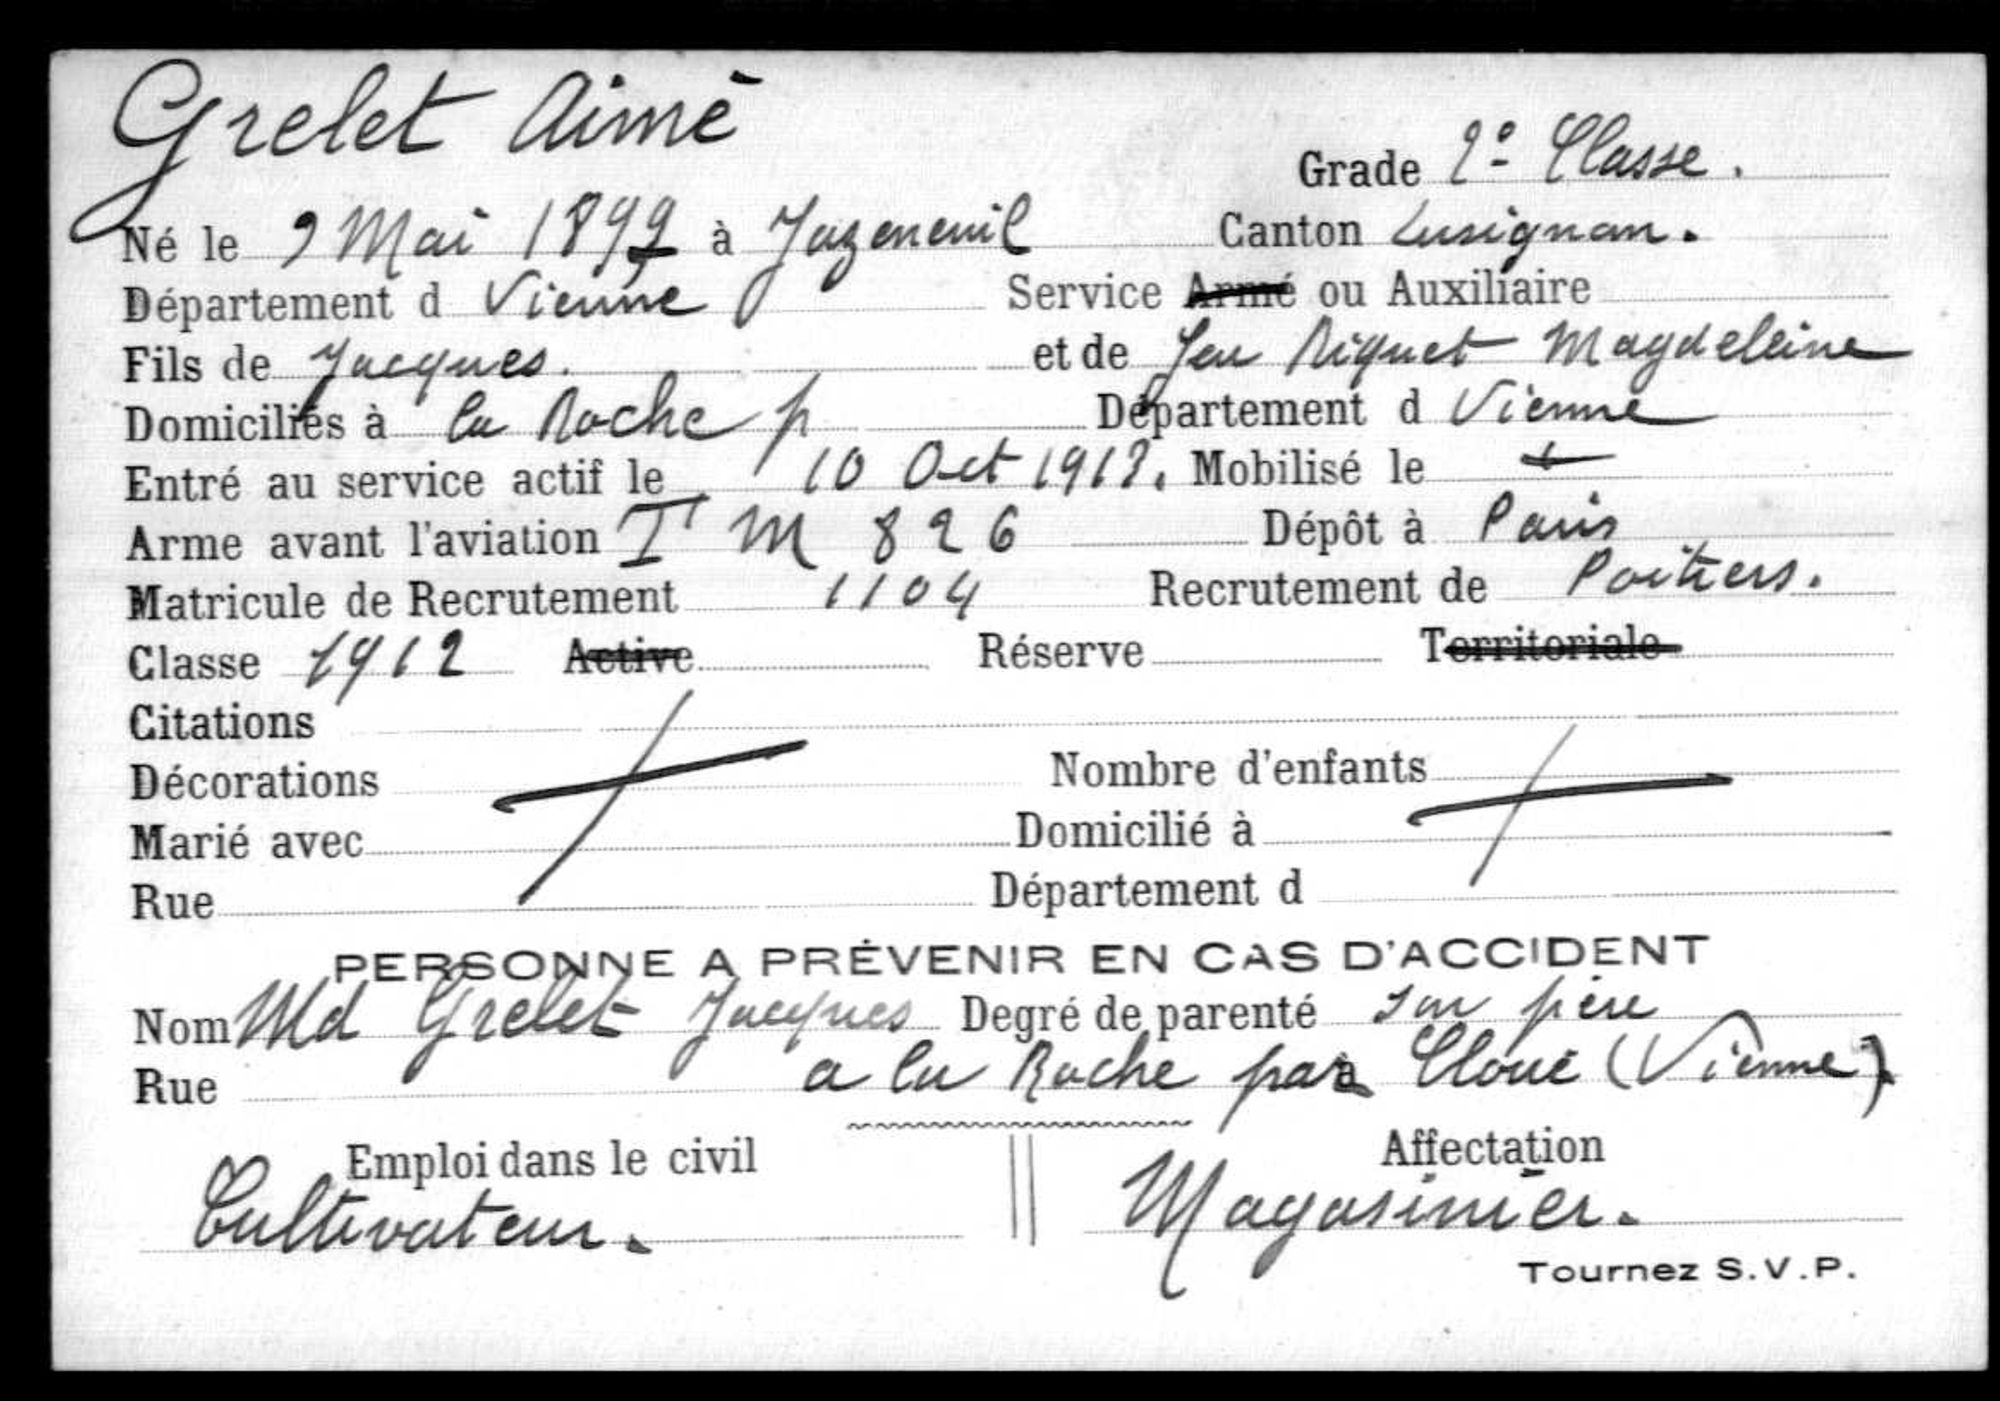 Grelet Aimé
Grade 2e Classe.
Né le 9 Mai 1892 à Jazeneuil Canton Lusignan.
Département d Vienne Service Armé ou Auxiliaire
Fils de Jacques. et de feu Riquet Magdeleine
Domiciliés à la Roche p Département d Vienne
Entré au service actif le 10 Oct 1913. Mobilisé le
Arme avant l'aviation I M 826 Dépôt à Paris
Matricule de Recrutement 1104 Recrutement de Poitiers.
Classe 1912 Active Réserve Territoriale
Citations
Décorations Nombre d'enfants
Marié avec Domicilié à
Rue Département d
PERSONNE A PRÉVENIR EN CAS D'ACCIDENT
Nom Md Grelet Jacques Degré de parenté son père
Rue a la Roche par Cloué (Vienne)
Emploi dans le civil Affectation
Cultivateur. Magasinier.
Tournez S.V.P.